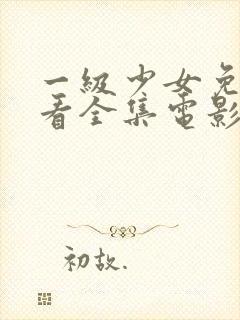 一級少女免
看全集電影
初故.